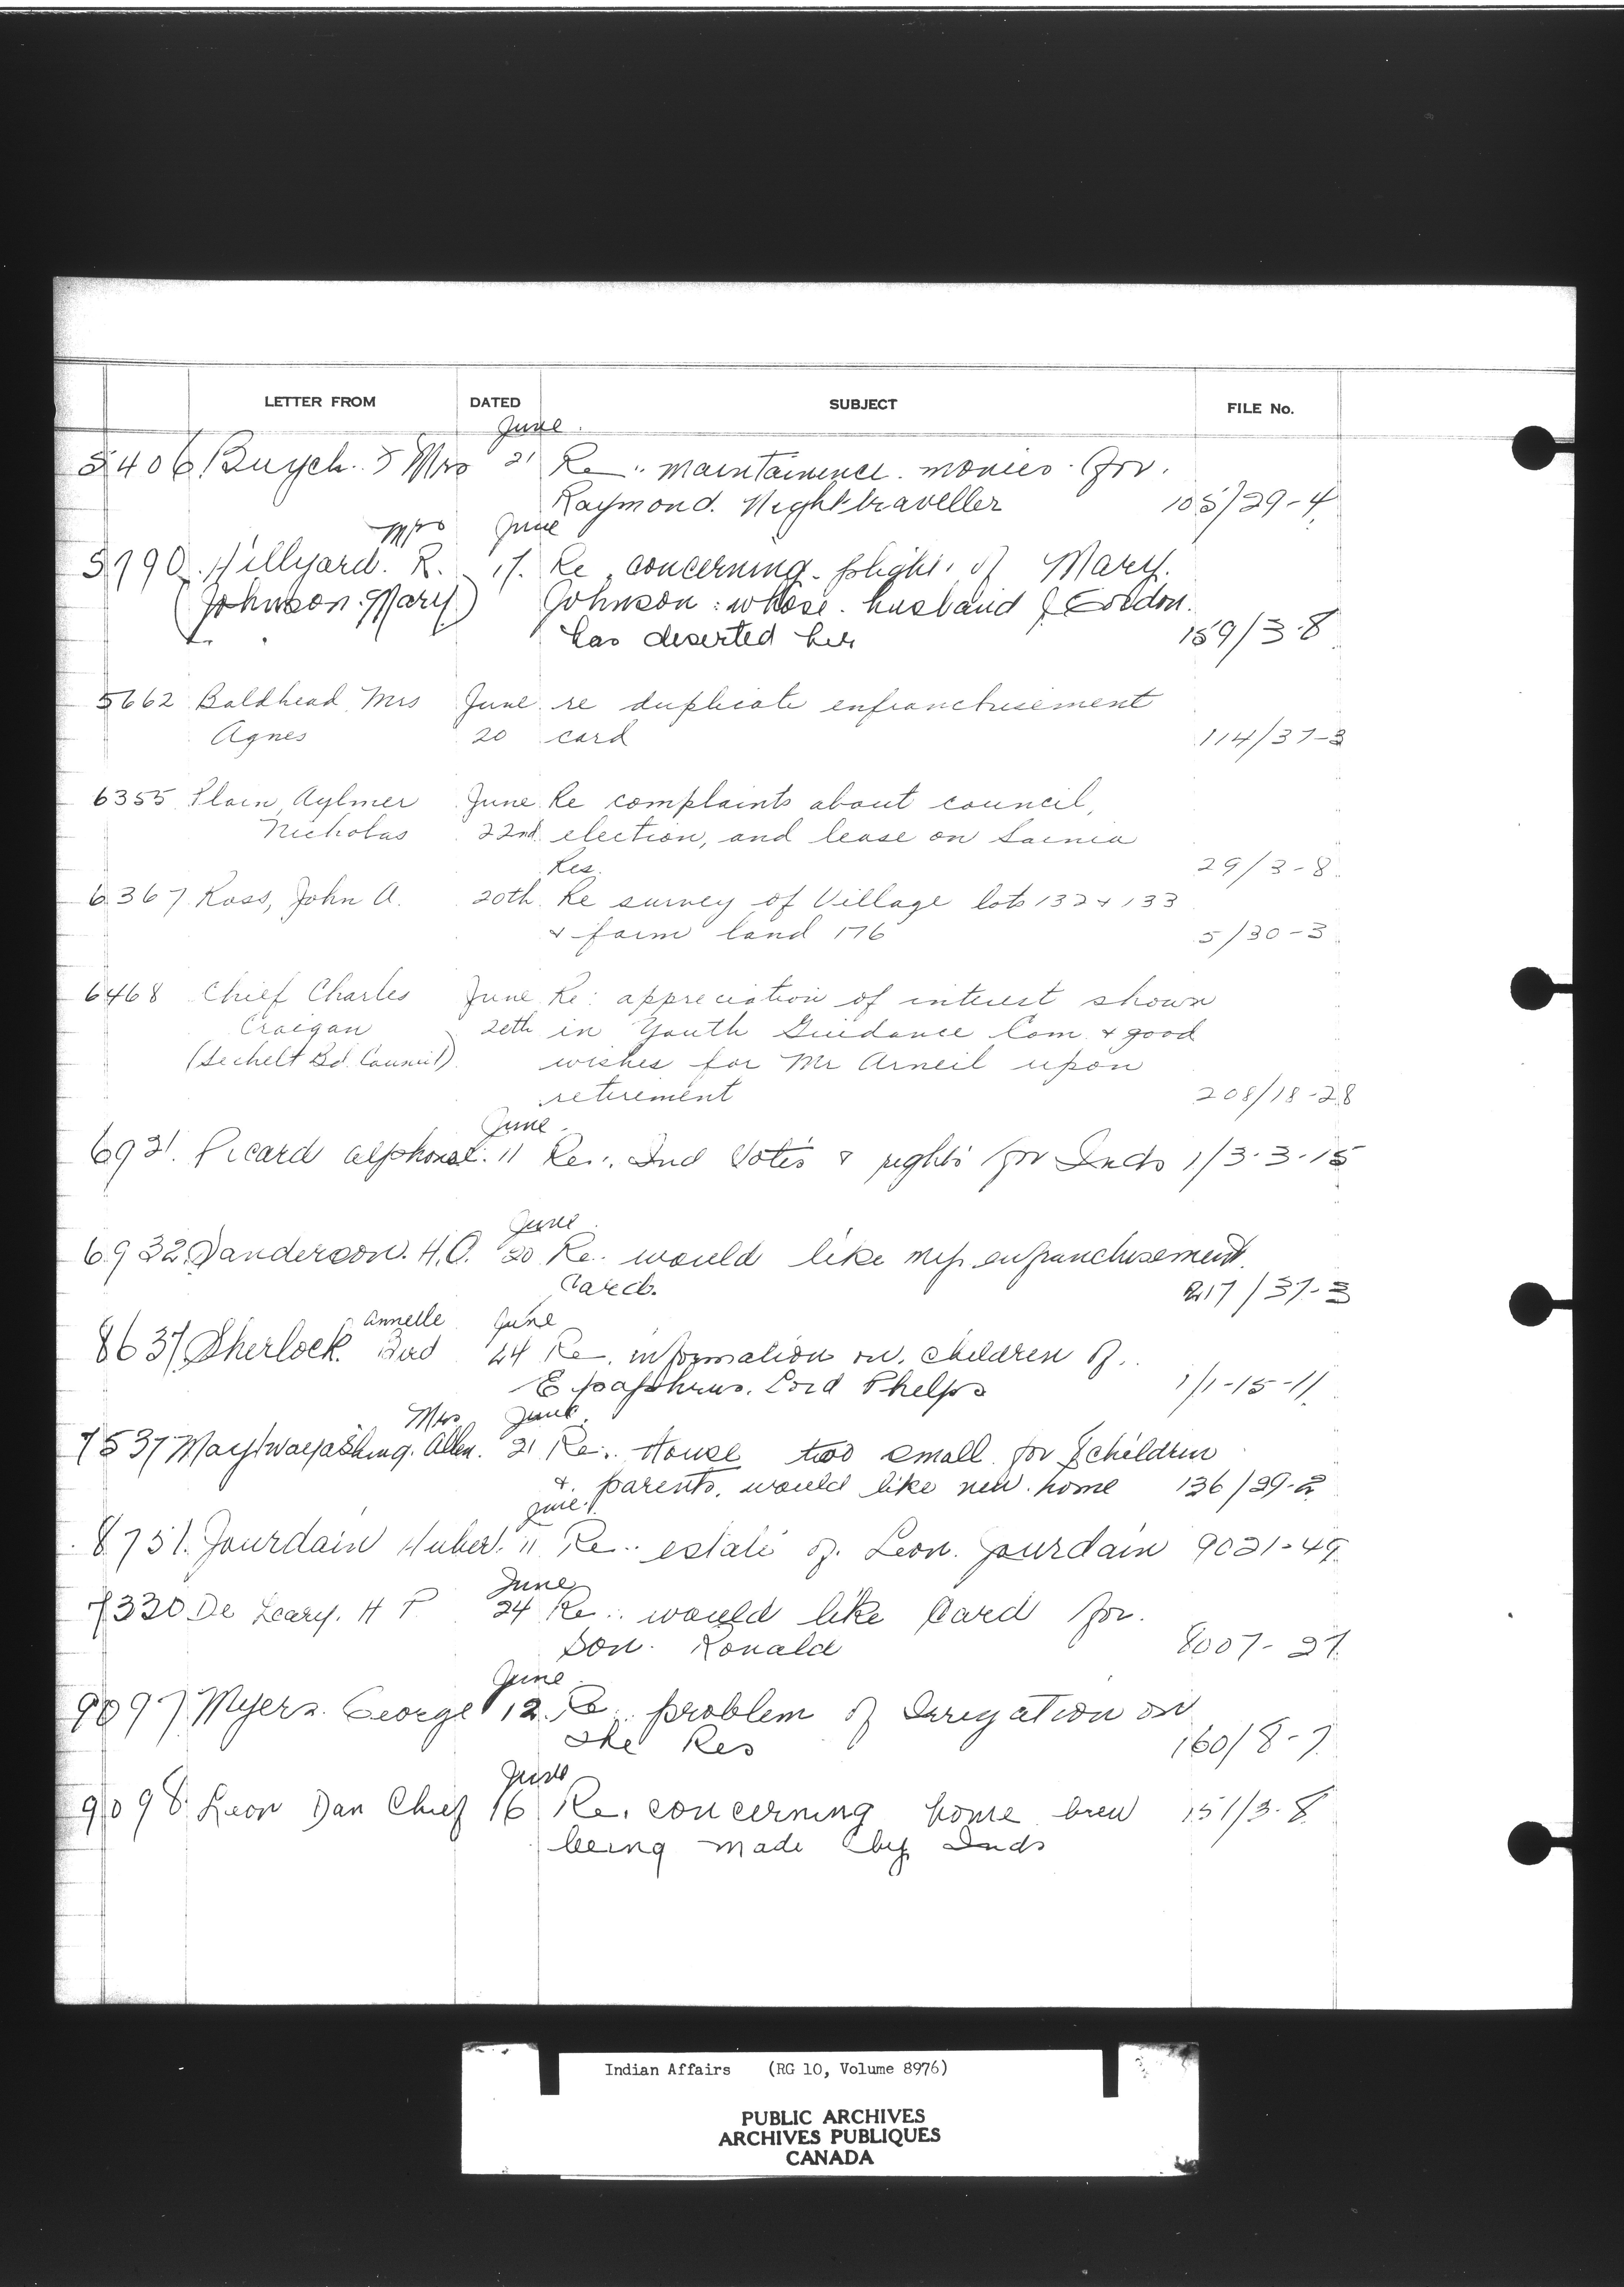 LETTER FROM DATED SUBJECT FILE No.
June
5406 Buych. J Mrs 21 Re. maintainence monies for.
Raymond. Nighttraveller 105/29-4
Mrs June
5790 Hillyard. R. 17. Re concerning plight of Mary.
(Johnson. Mary) Johnson: whose husband Gordon.
has deserted her 159/3-8
5662 Baldhead Mrs June re duplicate enfranchisement
Agnes 20 card 114/37-3
6355 Plain, Aylmer June Re complaints about council,
Nicholas 22nd election, and lease on Sarnia
Res. 29/3-8
6367 Ross, John A. 20th Re survey of Village lots 132 & 133
& farm land 176 5/30-3
6468 Chief Charles June Re: appreciation of interest shown
Craigan 20th in Youth Guidance Com. & good
(Sechelt Bd. Council) wishes for Mr Arneil upon
retirement 208/18-28
June
6921. Picard Alphonse. 11 Re: Ind Votes & rights for Inds 1/3-3-15
June
6932 Sanderson. H.O. 20 Re. would like enfranchisement.
Card. 217/37-3
Annelle June
8637 Sherlock. Bud 24 Re. information on. children of.
Lord Phelps 1/1-15-11
Mrs June
7537 Allen. 21 Re: House too small for 8 children
& parents. would like new home 136/29-2
June
8751. Jourdain Hubert. 11 Re. estate of. Leon. Jourdain 9021-49
June
7330 De Leary. H P 24 Re: would like Card for.
son. Ronald 8007-27
June
9097 Myers. George 12 Re: problem of Irrigation on
the Res 160/8-7
June
9098 Leon Dan Chief 16 Re. concerning home brew 151/3-8
being made by Inds
Indian Affairs (RG 10, Volume 8976)
PUBLIC ARCHIVES
ARCHIVES PUBLIQUES
CANADA